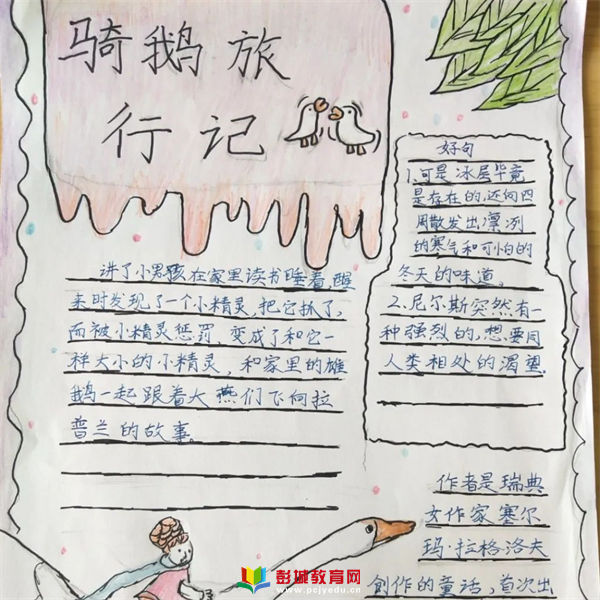 骑鹅旅
行记
讲了小男孩在家里读书睡着,醒
来时发现了一个小精灵,把它抓了,
而被小精灵惩罚,变成了和它一
样大小的小精灵,和家里的雄
鹅一起跟着大燕们飞向拉
普兰的故事。
好句
1.可是冰层毕竟
是存在的,还向四
周散发出凛冽
的寒气和可怕的
冬天的味道。
2.尼尔斯突然有一
种强烈的,想要同
人类相处的渴望.
作者是瑞典
女作家塞尔
玛·拉格洛夫
创作的童话,首次出
彭城教育网
www.pcjyedu.cn